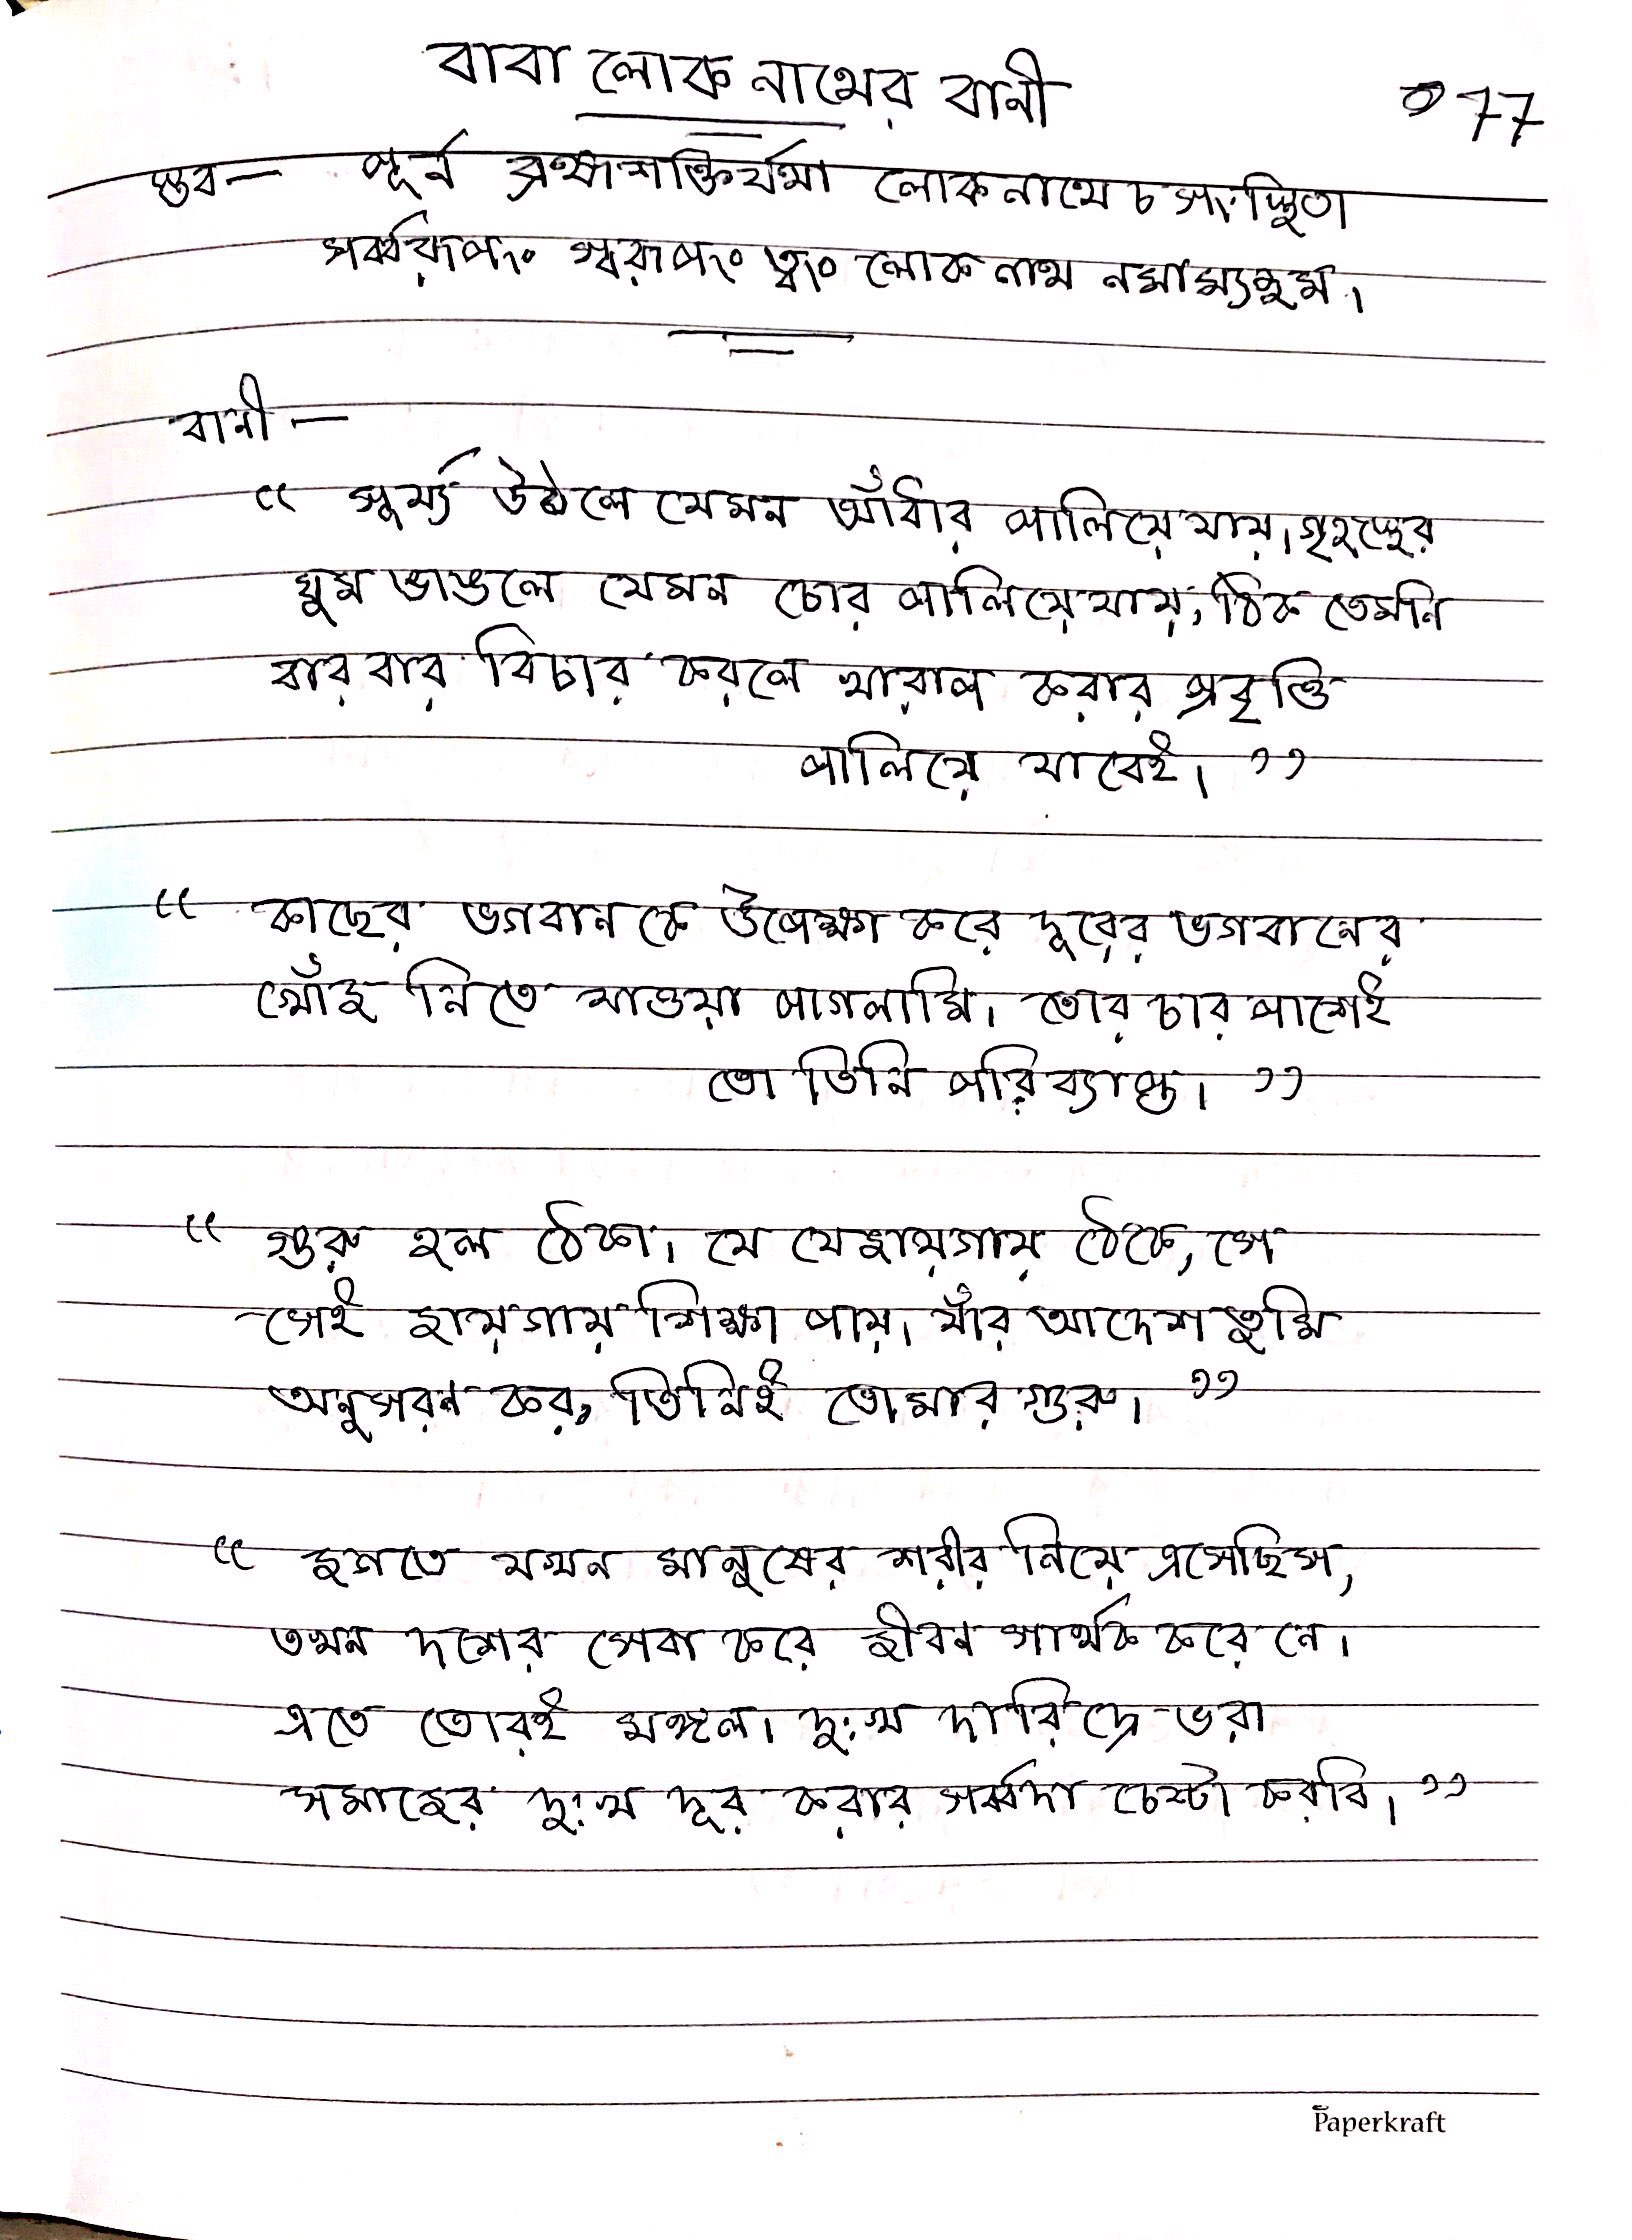 বাবা লোকনাথের বানী
77
স্তব— পূর্ন ব্রহ্মশক্তির্যথা লোকনাথে চ সংস্থিতা
সর্ব্বরূপং স্বরূপং ত্বং লোকনাথ নমাম্যহম।
বানী—
“ সূর্য্য উঠলে যেমন আঁধার পালিয়ে যায়। গৃহস্থের
ঘুম ভাঙলে যেমন চোর পালিয়ে যায়, ঠিক তেমনি
বারবার বিচার করলে খারাপ করার প্রবৃত্তি
পালিয়ে যাবেই। ”
“ কাছের ভগবানকে উপেক্ষা করে দূরের ভগবানের
খোঁজ নিতে যাওয়া পাগলামি। তোর চারপাশেই
তো তিনি পরিব্যাপ্ত। ”
“ গুরু হল ঠেকা। যে যেজায়গায় ঠেকে, সে
সেই জায়গায় শিক্ষা পায়। যাঁর আদেশ তুমি
অনুসরন কর, তিনিই তোমার গুরু। ”
“ জগতে যখন মানুষের শরীর নিয়ে এসেছিস,
তখন দশের সেবা করে জীবন সার্থক করে নে।
এতে তোরই মঙ্গল। দুঃখ দারিদ্রে ভরা
সমাজের দুঃখ দূর করার সর্ব্বদা চেস্টা করবি। ”
Paperkraft